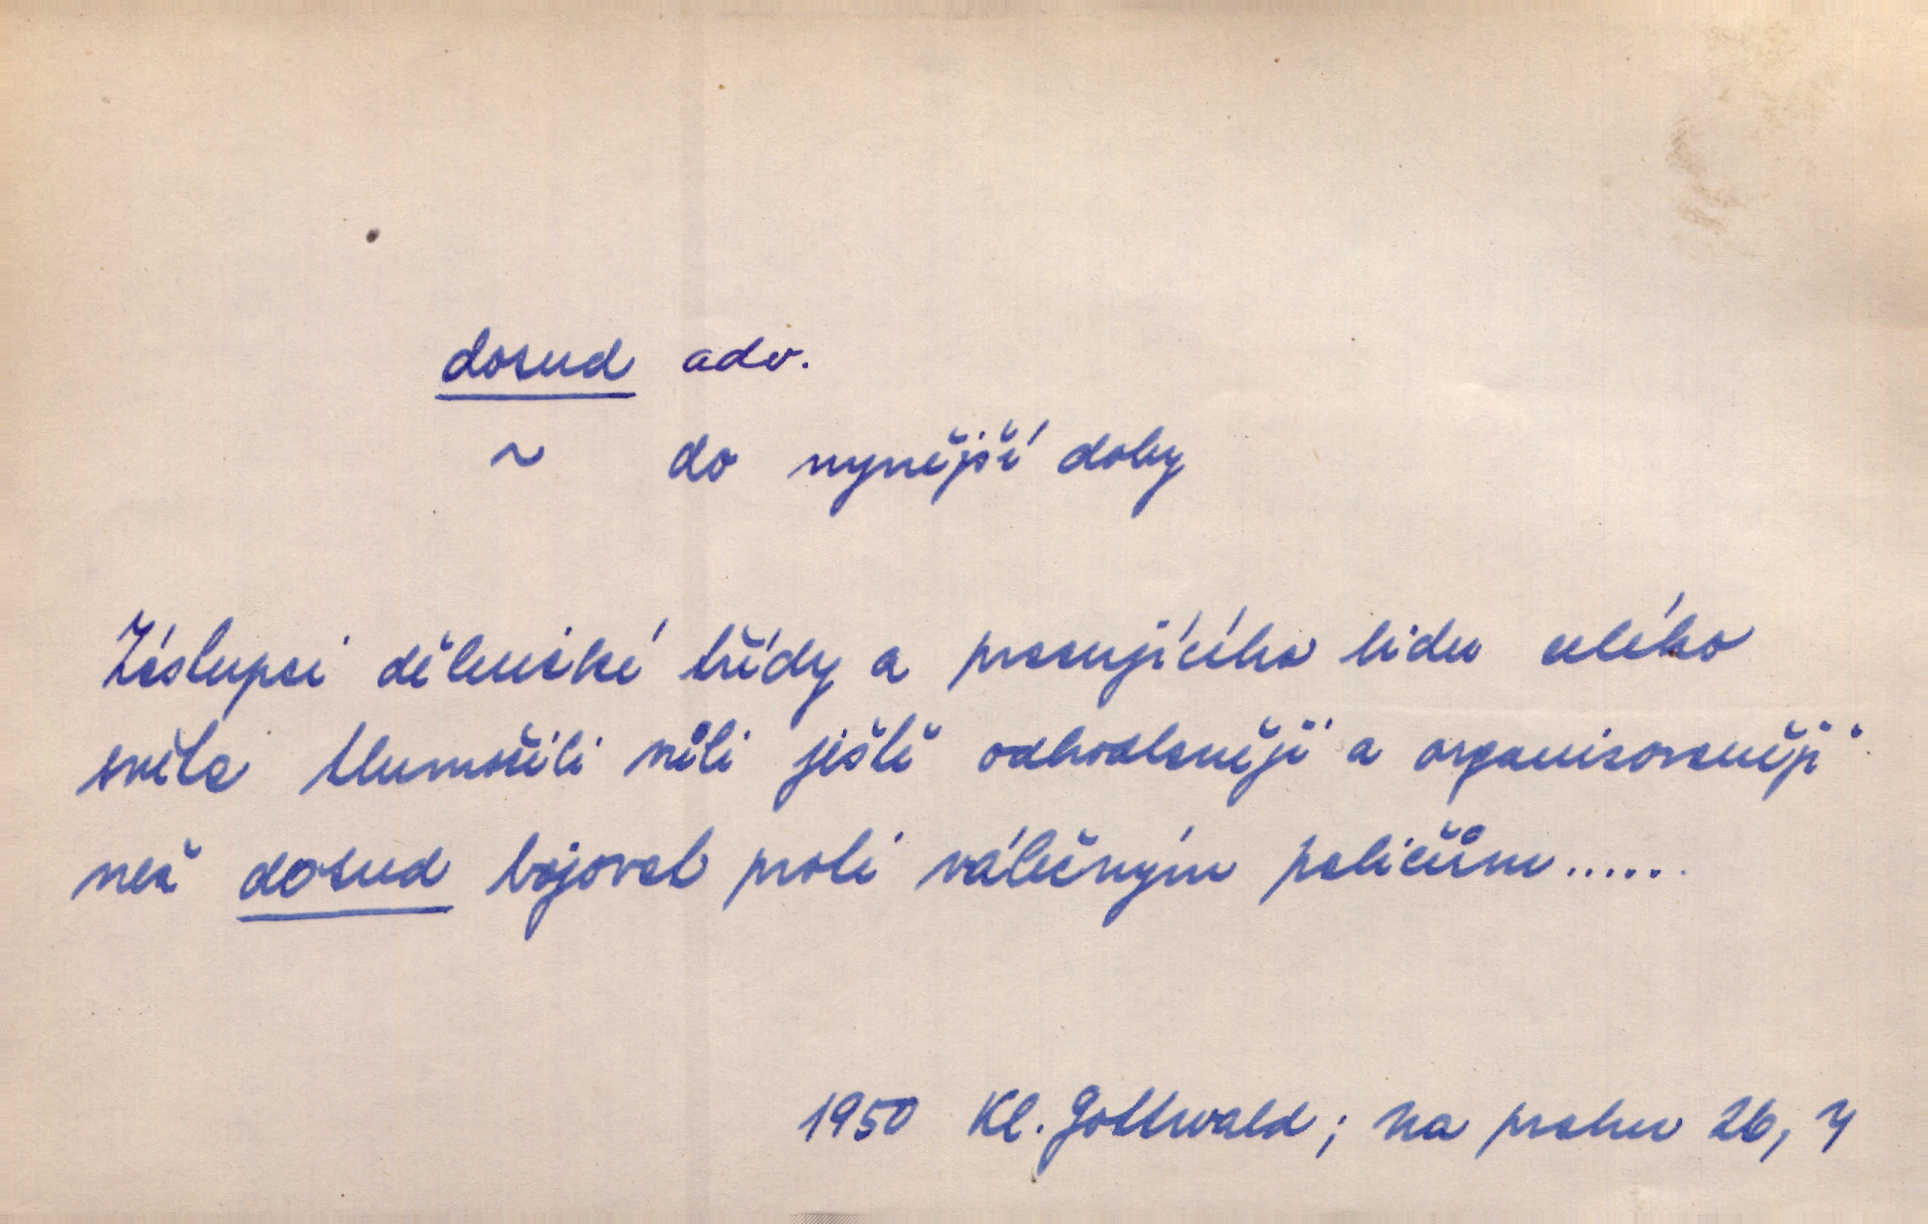 dosud adv.
~ do nynější doby
Zástupci dělnické třídy a pracujícího lidu celého
světa tlumočili vůli ještě odhodlaněji a organisovaněji
než dosud bojovat proti válečným paličům.....
1950 Kl. Gottwald; Na prahu 26, 4